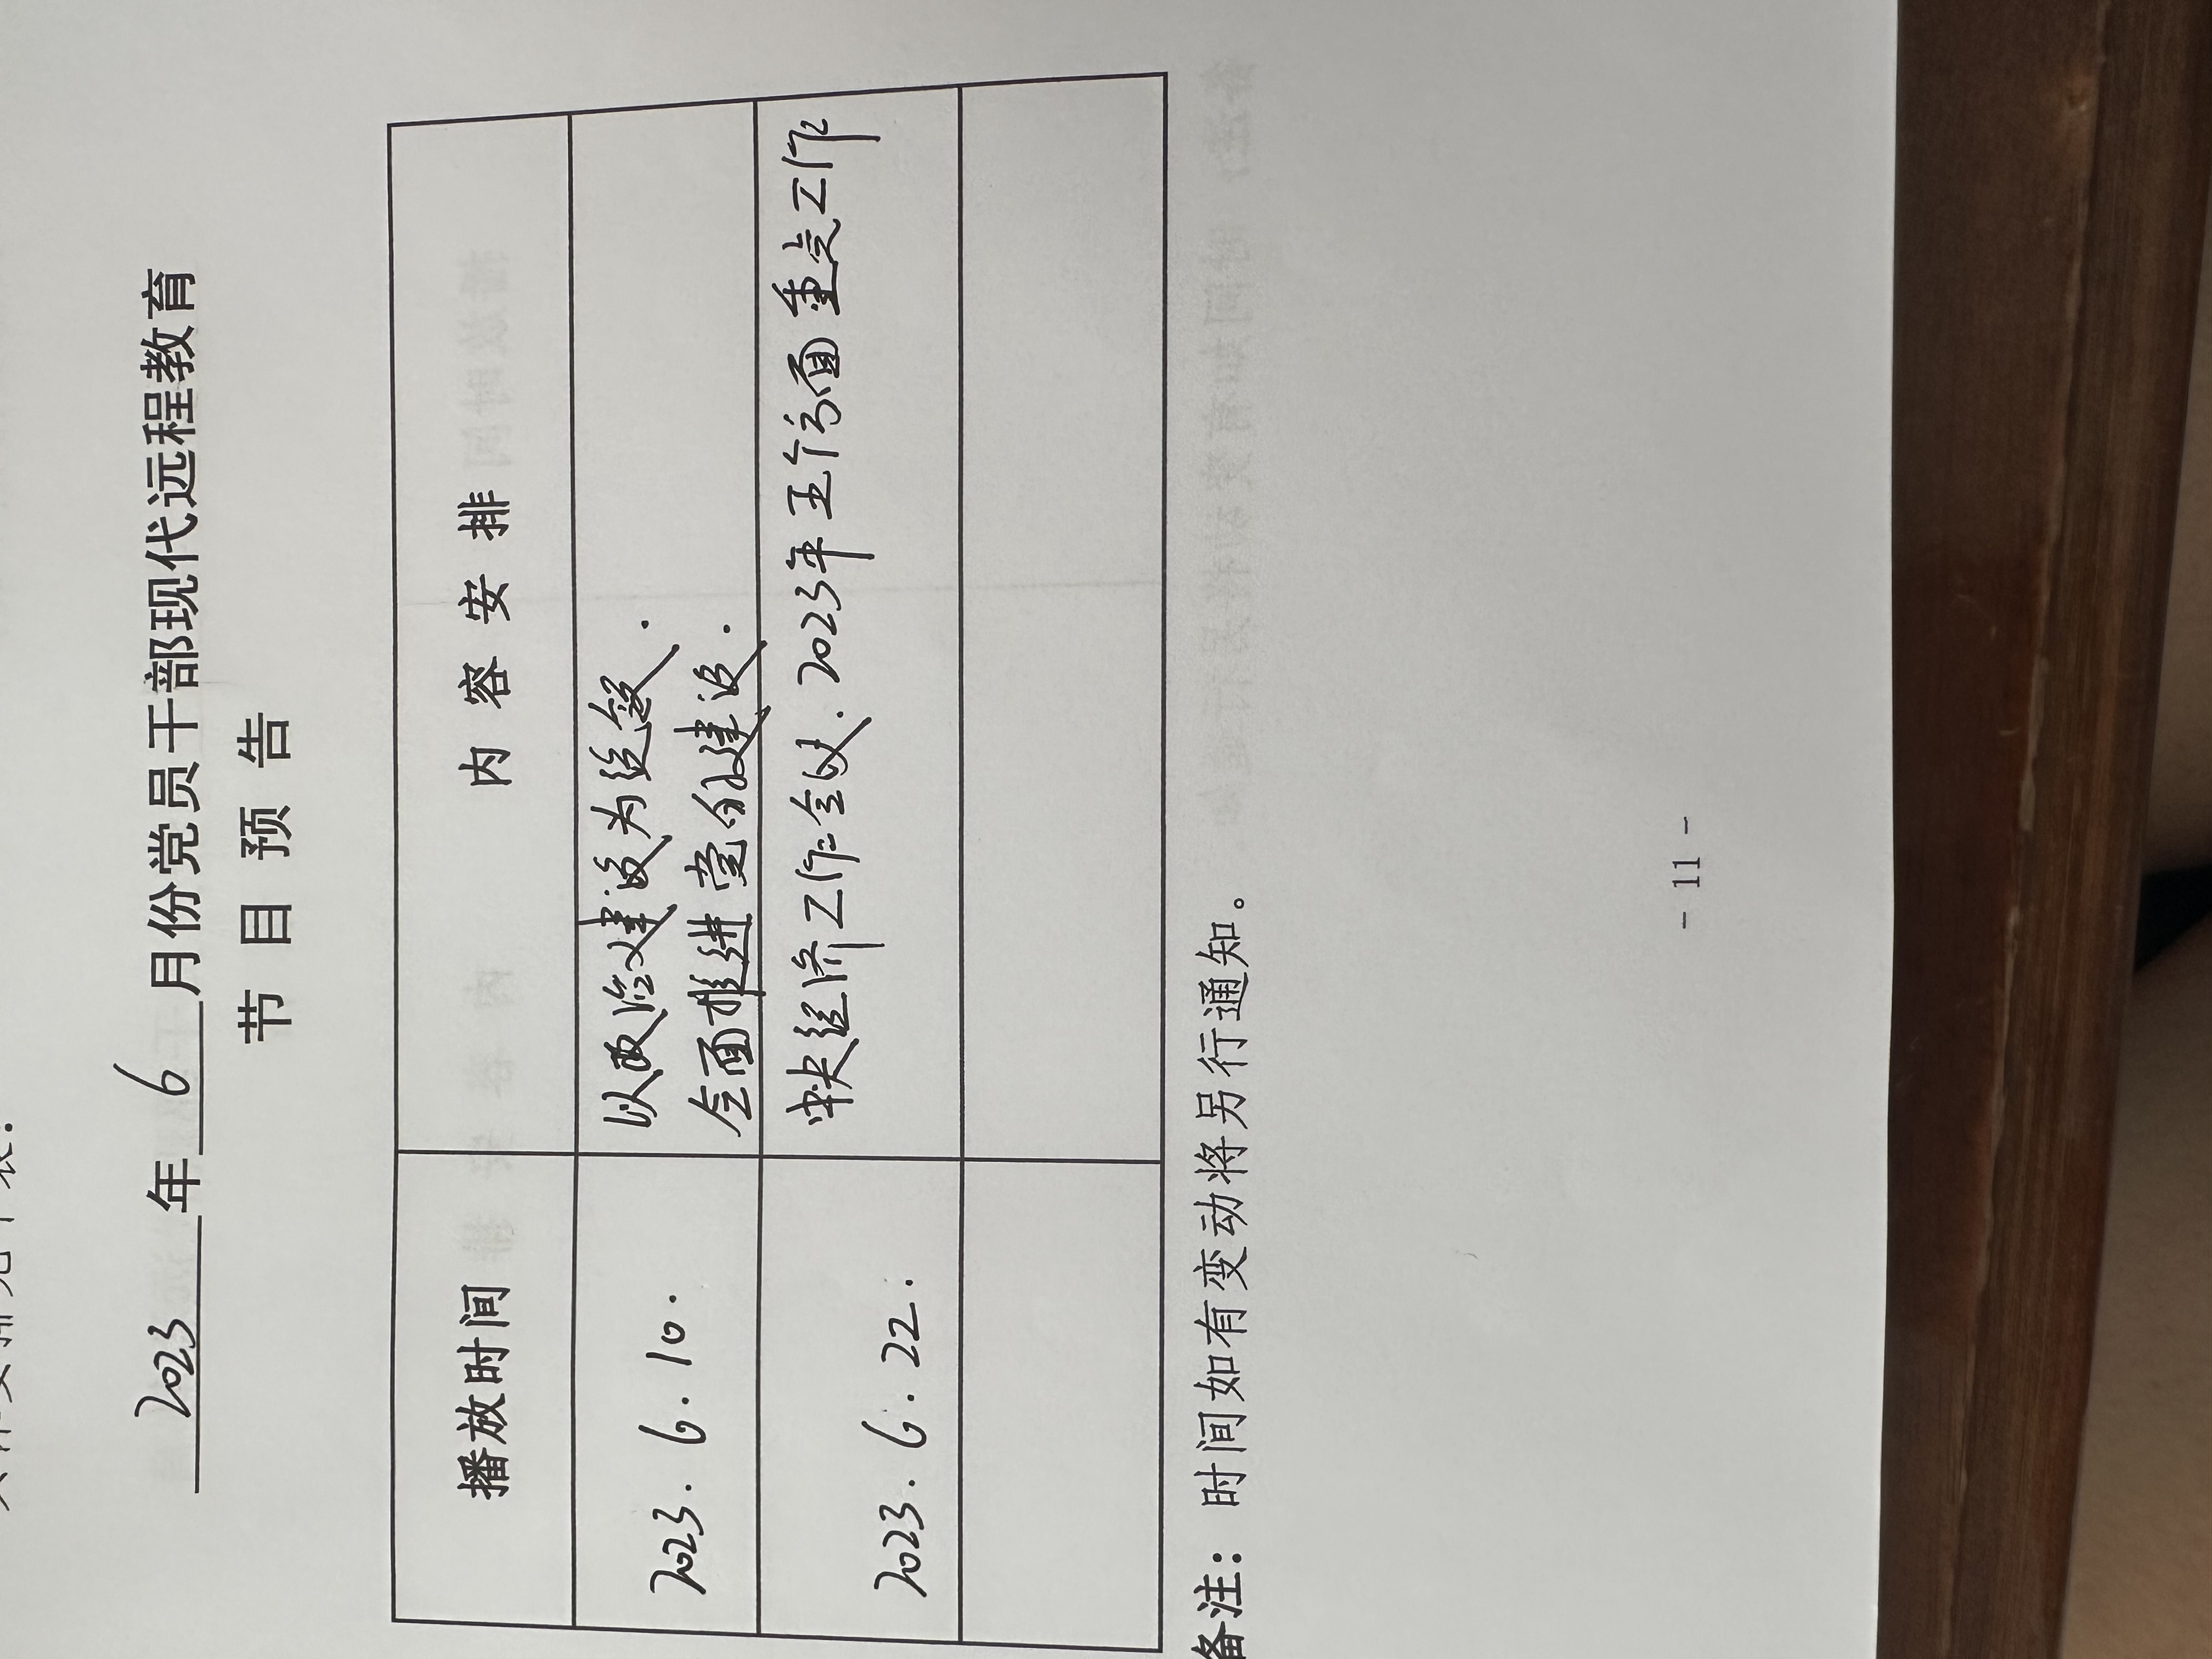 2023年6月份党员干部现代远程教育
节目预告
播放时间 内容安排
2023.6.10. 以政治建设为统领.
全面推进党的建设.
2023.6.22. 中央经济工作会议.2023年五个方面重点工作
备注：时间如有变动将另行通知。
- 11 -